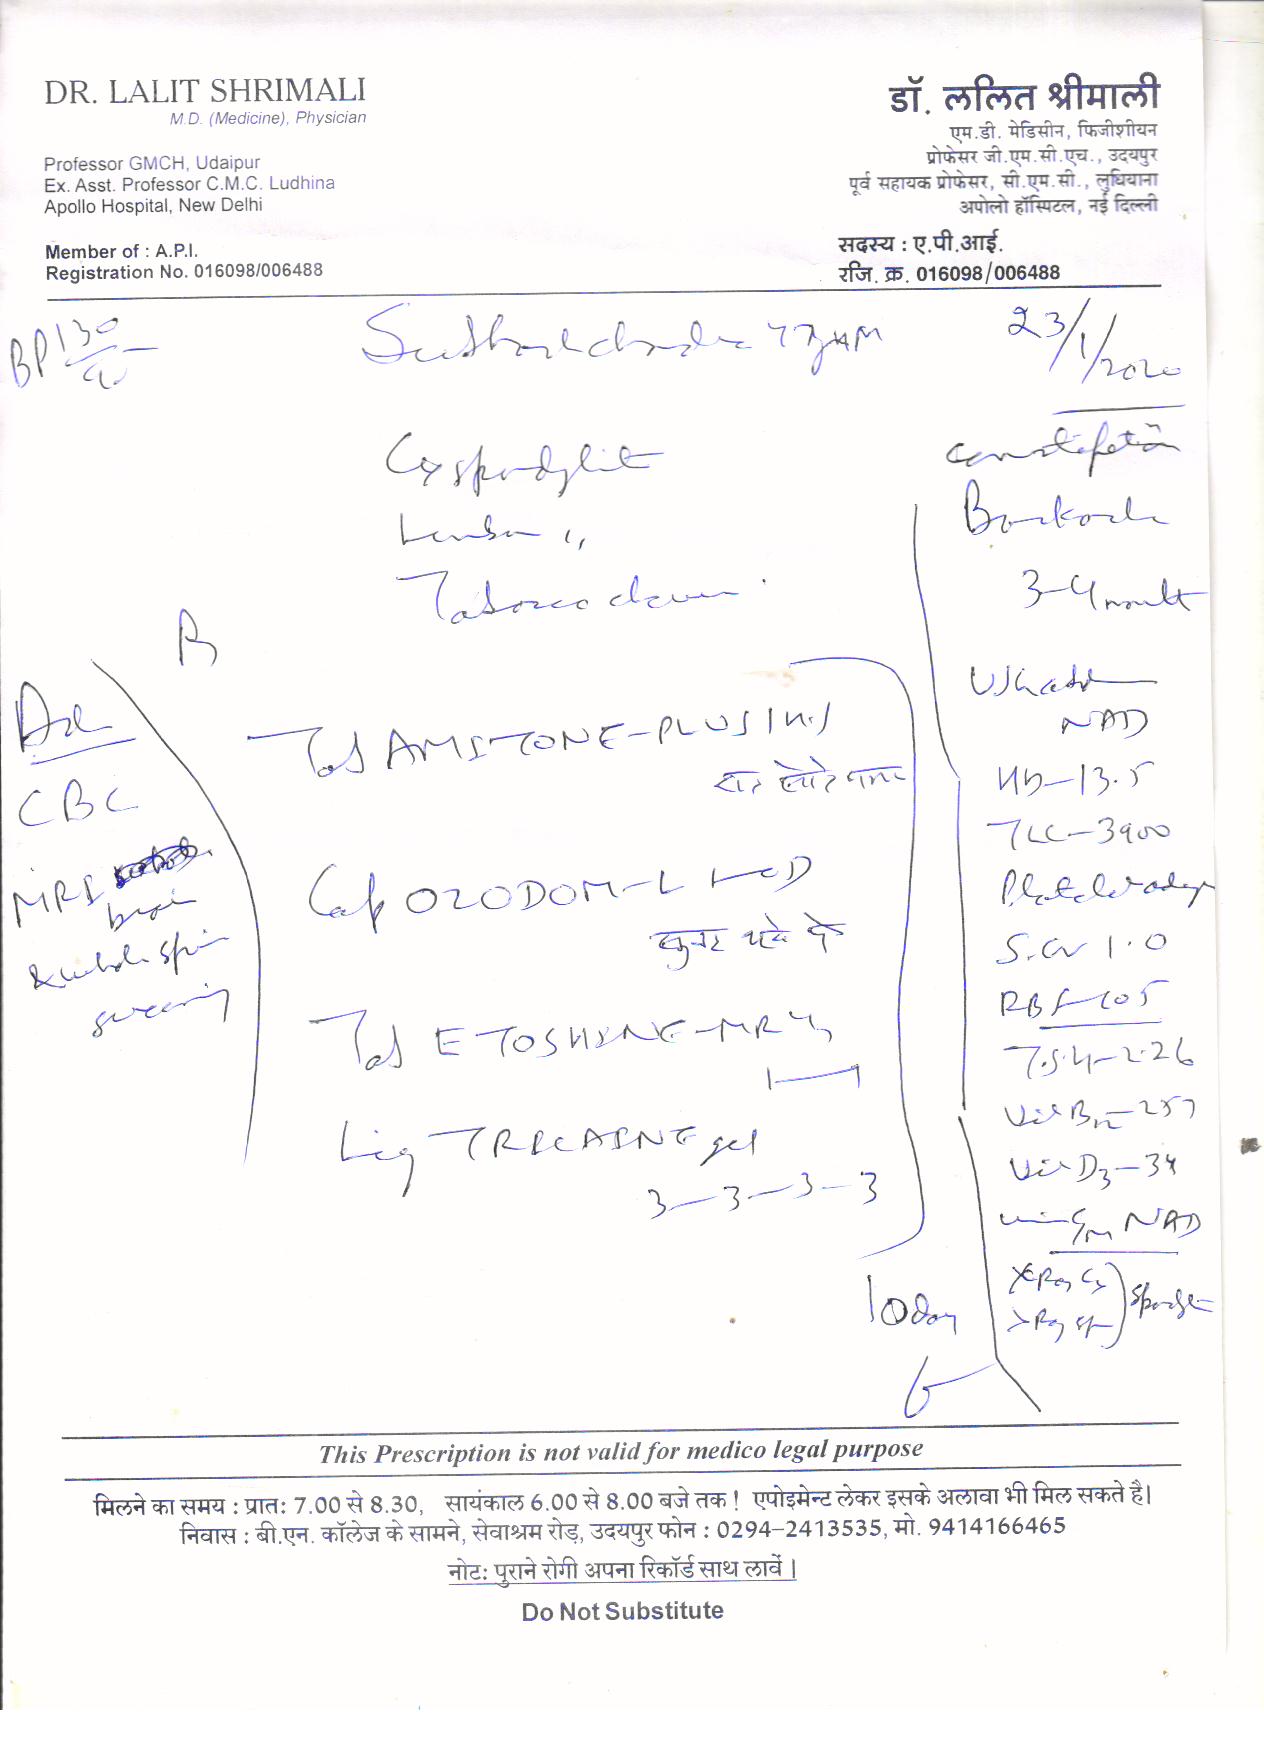 DR. LALIT SHRIMALI
M.D. (Medicine), Physician
Professor GMCH, Udaipur
Ex. Asst. Professor C.M.C. Ludhina
Apollo Hospital, New Delhi
Member of : A.P.I.
Registration No. 016098/006488
डॉ. ललित श्रीमाली
एम.डी. मेडिसीन, फिजीशीयन
प्रोफेसर जी.एम.सी.एच., उदयपुर
पूर्व सहायक प्रोफेसर, सी.एम.सी., लुधियाना
अपोलो हॉस्पिटल, नई दिल्ली
सदस्य : ए.पी.आई.
रजि. क्र. 016098/006488
BP 130
23/1/2020
Cx spondylit
Lumbar "
constipation
Backache
3-4 month
NAD
Hb-13.5
TLC-3900
S.Cr 1.0
RBS-105
T.S.H-2.26
Vit B12-257
Vit D3-34
NAD
X Ray Cx
X Ray
Adv
CBC
MRI
brain
& whole spine
screening
Tab AMSTONE-PLUS
Cap OZODOM-L
Tab ETOSHINE-MR
gel
3-3-3-3
10 day
This Prescription is not valid for medico legal purpose
मिलने का समय : प्रातः 7.00 से 8.30, सायंकाल 6.00 से 8.00 बजे तक ! एपोइमेन्ट लेकर इसके अलावा भी मिल सकते है।
निवास : बी.एन. कॉलेज के सामने, सेवाश्रम रोड़, उदयपुर फोन : 0294-2413535, मो. 9414166465
नोट: पुराने रोगी अपना रिकॉर्ड साथ लावें।
Do Not Substitute